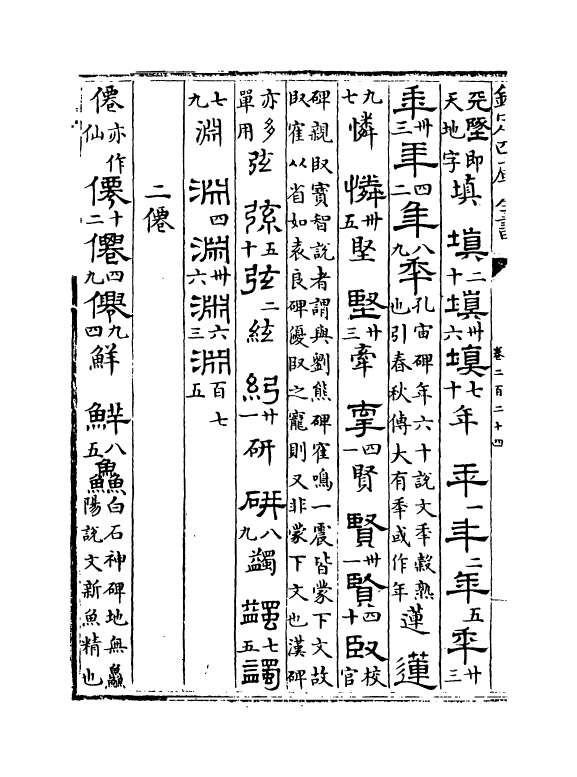 欽定四庫全書 卷二百二十四
兲墬即天地字 填 填二十 填卅六 填七十 年 年一 年二 年五 秊卅三
秊卅三 年四二 年八九 秊孔宙碑年六十說文秊穀熟也引春秋傳大有秊或作年 蓮 蓮
九七 憐 憐卅五 堅 堅廿三 牽 牽四一 賢 賢卅一 賢四十 臤校官
碑親臤寳智說者謂與劉熊碑寉鳴一震皆蒙下文故臤寉从省如袁良碑優臤之寵則又非蒙下文也漢碑
亦多單用 弦 弦五十 弦二 絃 絃廿一 研 研八九 蠲 蠲七五 蠲
七九 淵 淵四 淵卅六 淵六三 淵百七五
二僊
僊亦作仙 僊十二 僊四九 僊九四 鮮 鮮八五 鱻白石神碑地無鱻陽說文新魚精也